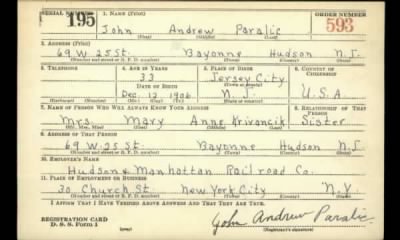 SERIAL NUMBER 1. NAME (Print) ORDER NUMBER
195 John Andrew Paralic 593
(First) (Middle) (Last)
2. ADDRESS (Print)
69 W 25 St. Bayonne Hudson N.J.
(Number and street or R. F. D. number) (Town) (County) (State)
3. TELEPHONE 4. AGE IN YEARS 5. PLACE OF BIRTH 6. COUNTRY OF CITIZENSHIP
33 Jersey City
DATE OF BIRTH (Town or county)
Dec. 12 1906 N.J. U.S.A.
(Exchange) (Number) (Mo.) (Day) (Yr.) (State or country)
7. NAME OF PERSON WHO WILL ALWAYS KNOW YOUR ADDRESS 8. RELATIONSHIP OF THAT PERSON
Mrs. Mary Anne Krivancik Sister
(Mr., Mrs., Miss) (First) (Middle) (Last)
9. ADDRESS OF THAT PERSON
69 W. 25 St. Bayonne Hudson N.J.
(Number and street or R. F. D. number) (Town) (County) (State)
10. EMPLOYER'S NAME
Hudson & Manhattan Railroad Co.
11. PLACE OF EMPLOYMENT OR BUSINESS
30 Church St New York City N.Y.
(Number and street or R. F. D. number) (Town) (County) (State)
I AFFIRM THAT I HAVE VERIFIED ABOVE ANSWERS AND THAT THEY ARE TRUE.
REGISTRATION CARD
D. S. S. Form 1 John Andrew Paralic